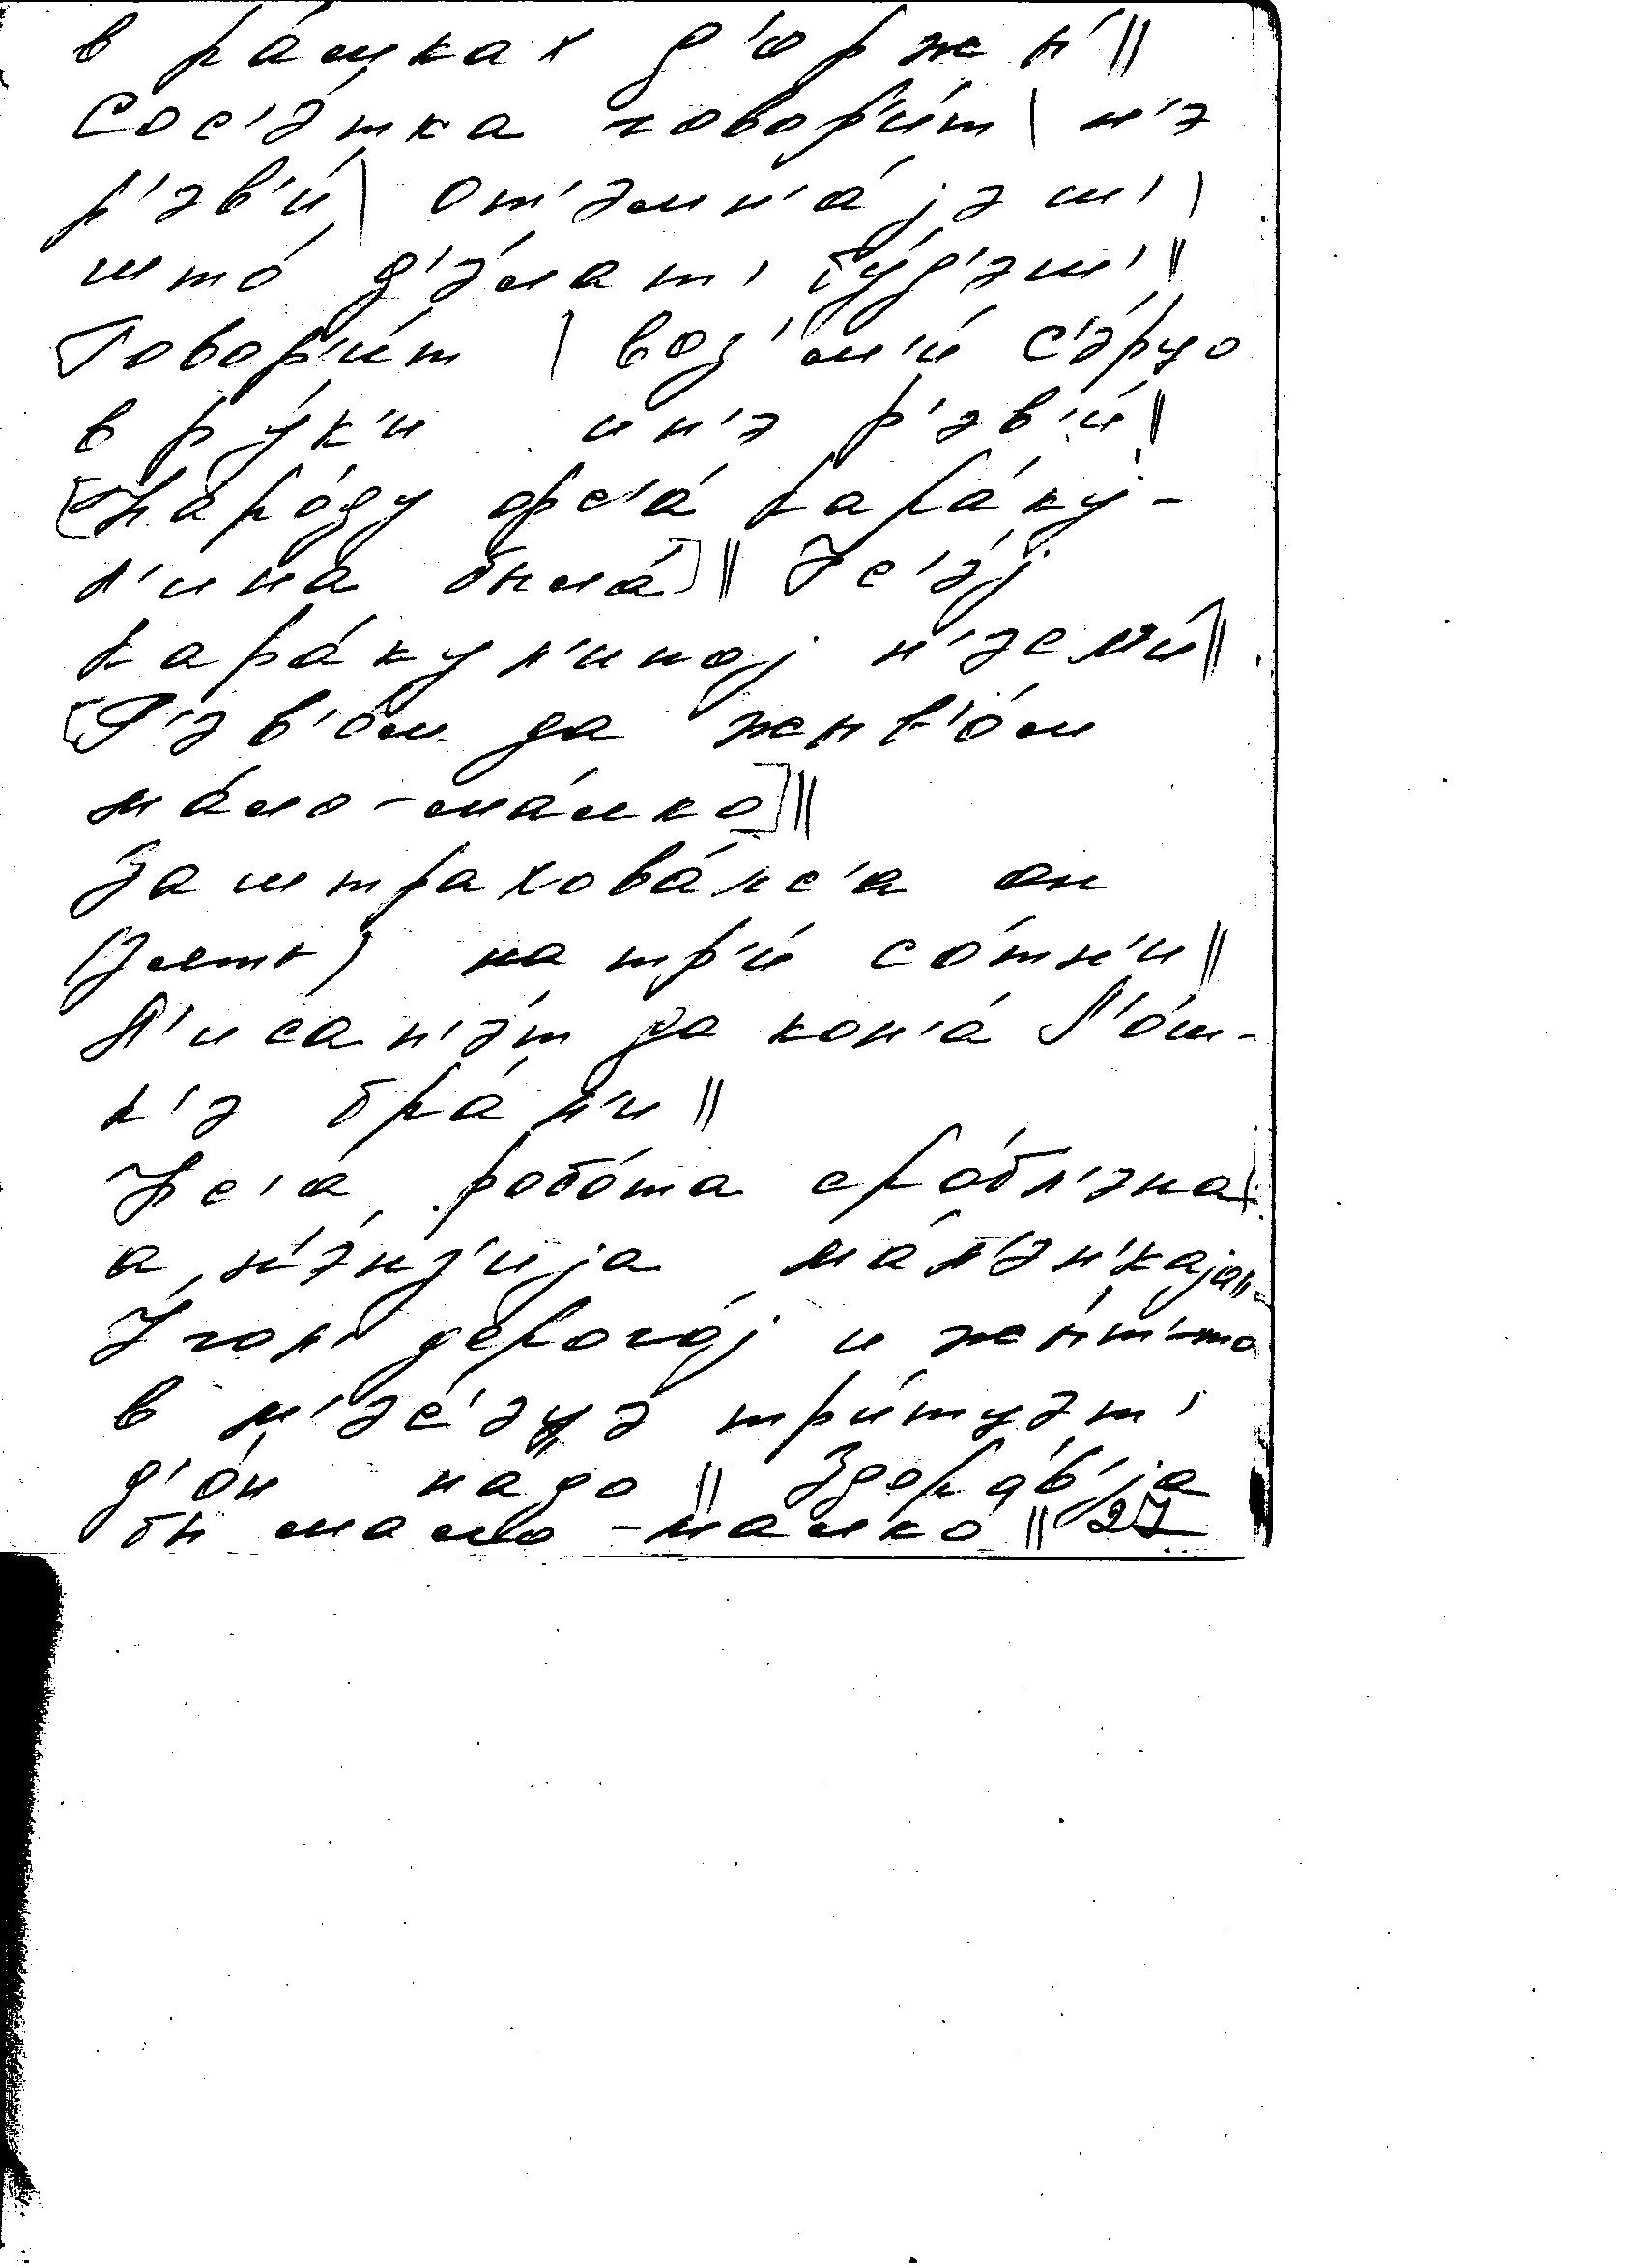 в ра́мках д'оржы́ ||
Сос'э́тка говор'и́т | н'э
р'эв'и́ | От'эмн'а́јэш' |
што́ д'э́лат' бу́д'эш' ||
[Говор'и́т | воз'м'и́ с'э́рцо
в ру́к'и и н'э р'эв'и́ ||
[Наро́ду фс'а́ кара́ку-
л'ина была́] || Јс'э́ј
кара́кул'иној н'эсл'и́ ||
[Р'эв'о́м да жыв'о́м
ма́ло-ма́лко] ||
Заштрахова́лс'а он
на тр'и́ со́тн'и ||
П'иса н'э́т да кон'а́ Л'о́ш-
к'э бра́н'и ||
робо́та сро́бл'эна |
а п'э́нз'ија ма́л'эн'каја ||
У́гол' дорого́ј и жы́т'-то
в м'э́с'эцэ тр'и́тцэт'
д'о́н надо || Здоро́в'ја
бы мало-малко || 27